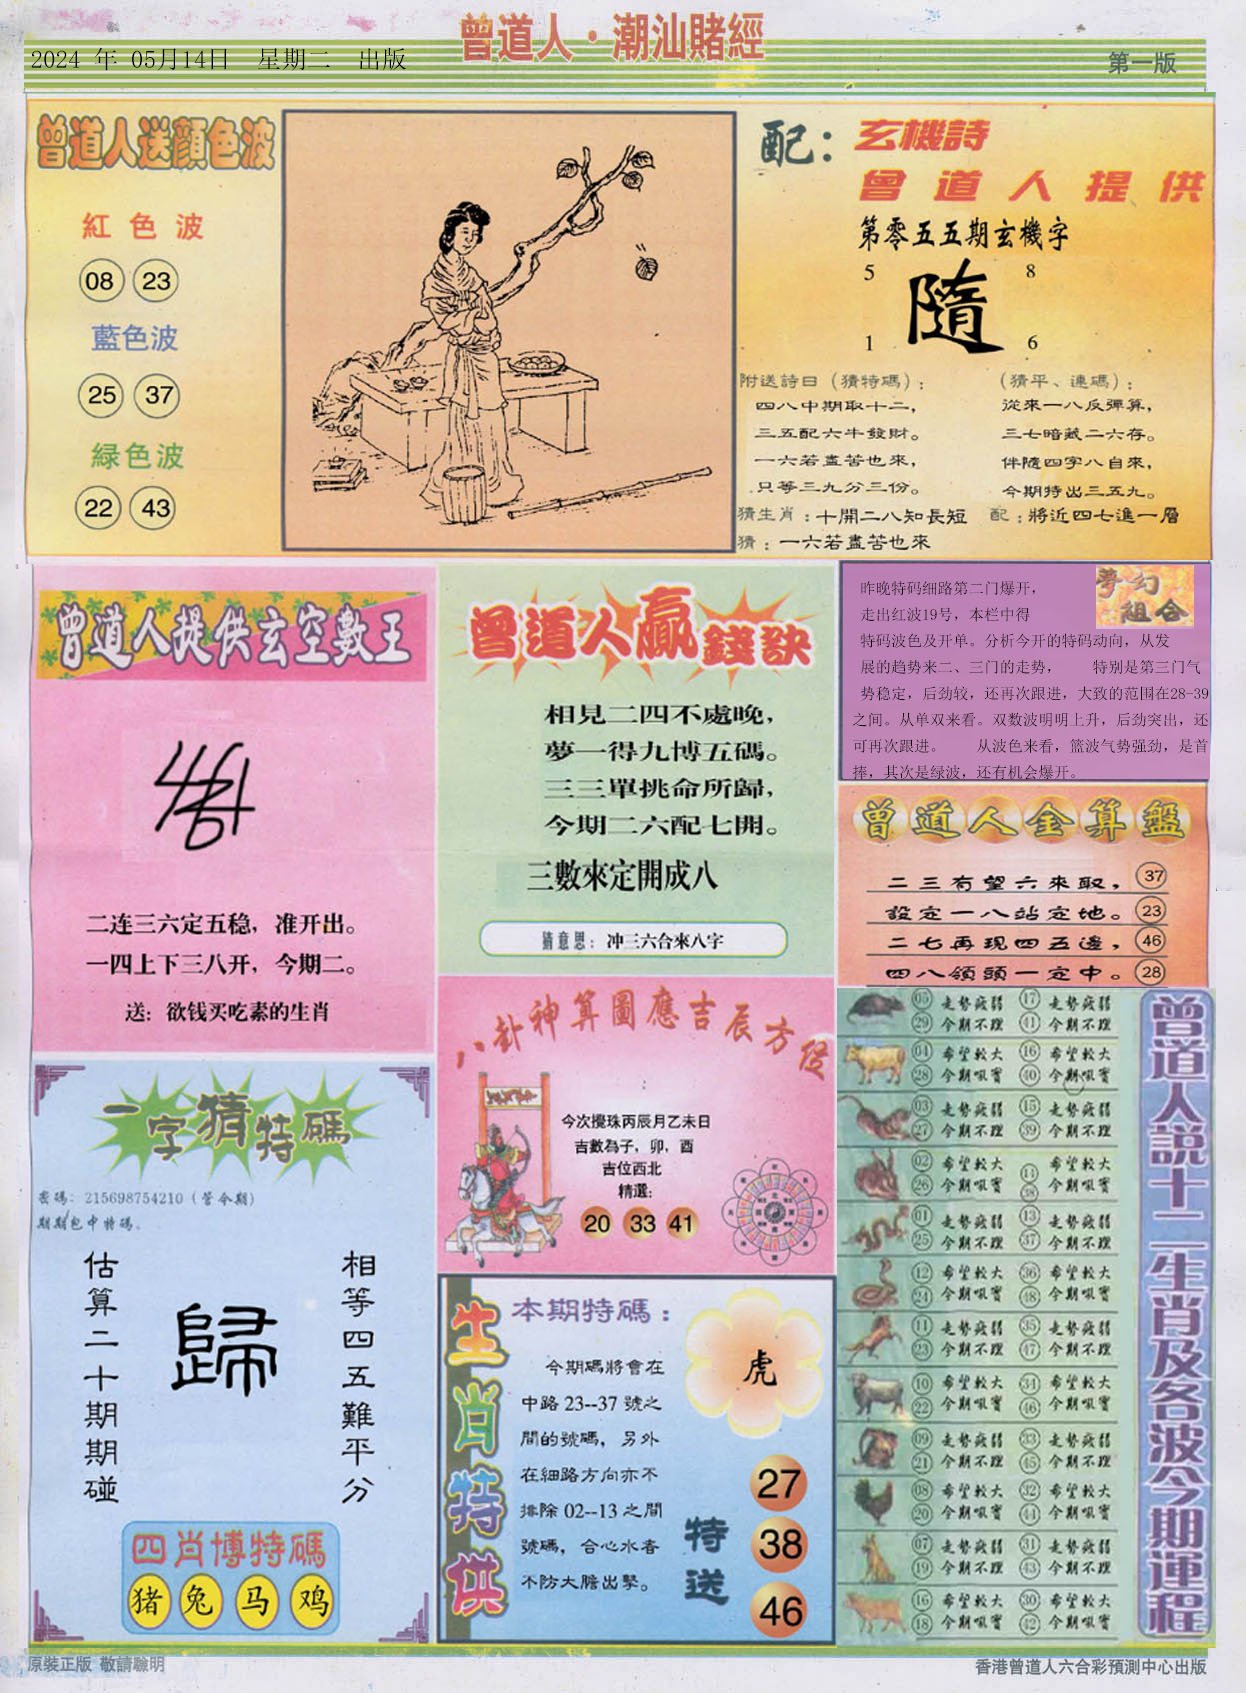 曾道人·潮汕賭經
2024 年 05月14日 星期二 出版
第一版
曾道人送顔色波
紅色波
08 23
藍色波
25 37
緑色波
22 43
配：
玄機詩
曾道人提供
第零五五期玄機字
5 8
隨
1 6
附送詩日（猜特碼）：
四八中期取十二，
三五配六牛發財。
一六若盡苦也來，
只等三九分三份。
（猜平、連碼）：
從來一八反彈算，
三七暗藏二六存。
伴隨四字八自來，
今期特出三五九。
猜生肖：十開二八知長短 配：將近四七進一層
猜：一六若盡苦也來
曾道人提供玄空數王
二连三六定五稳，准开出。
一四上下三八开，今期二。
送：欲钱买吃素的生肖
曾道人贏錢訣
相見二四不處晚，
夢一得九博五碼。
三三單挑命所歸，
今期二六配七開。
三數來定開成八
猜意思：冲三六合來八字
夢幻組合
昨晚特码细路第二门爆开，
走出红波19号，本栏中得
特码波色及开单。分析今开的特码动向，从发
展的趋势来二、三门的走势， 特别是第三门气
势稳定，后劲较，还再次跟进，大致的范围在28-39
之间。从单双来看。双数波明明上升，后劲突出，还
可再次跟进。 从波色来看，篮波气势强劲，是首
捧，其次是绿波，还有机会爆开。
曾道人金算盤
二三有望六來取，37
設定一八站定地。23
二七再現四五邊，46
四八領頭一定中。28
八卦神算圖應吉辰方位
今次攪珠丙辰月乙未日
吉數為子，卯，酉
吉位西北
精選：
20 33 41
一字猜特碼
密碼：215698754210（管令期）
期期包中特碼。
估算二十期期碰
歸
相等四五難平分
四肖博特碼
猪 兔 马 鸡
生肖特供
本期特碼：
今期碼將會在
中路 23--37 號之
間的號碼，另外
在細路方向亦不
排除 02--13 之間
號碼，合心水者
不防大膽出擊。
虎
特送
27
38
46
曾道人説十二生肖及各波今期運程
05 走勢疲弱 17 走勢疲弱
29 今期不理 41 今期不理
04 希望較大 16 希望較大
28 今期吼實 40 今期吼實
03 走勢疲弱 15 走勢疲弱
27 今期不理 39 今期不理
02 希望較大 14 希望較大
26 今期吼實 38 今期吼實
01 走勢疲弱 13 走勢疲弱
25 今期不理 37 今期不理
12 希望較大 36 希望較大
24 今期吼實 48 今期吼實
11 走勢疲弱 35 走勢疲弱
23 今期不理 47 今期不理
10 希望較大 34 希望較大
22 今期吼實 46 今期吼實
09 走勢疲弱 33 走勢疲弱
21 今期不理 45 今期不理
08 希望較大 32 希望較大
20 今期吼實 44 今期吼實
07 走勢疲弱 31 走勢疲弱
19 今期不理 43 今期不理
16 希望較大 30 希望較大
18 今期吼實 42 今期吼實
原裝正版 敬請聯明
香港曾道人六合彩預測中心出版